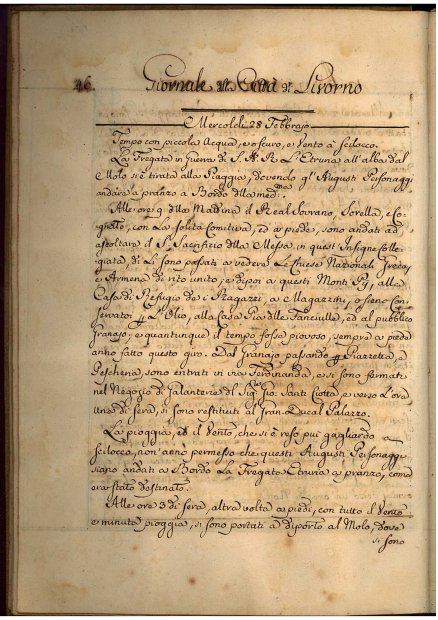 46.
Giornale dlla Città di Livorno
Mercoldì 28 Febbrajo
Tempo con piccola Acqua, e oscuro, e Vento à Scilocco.
La Fregata in Guerra di S. A. R. L'Etruria all'alba dal
Molo si è tirata alla Piaggia, dovendo gl'Augusti Personaggi
andare a pranzo a Bordo dlla med:ma
Alle ore 9 dlla Mattina il Real Sovrano, Sorella, e Co-
gnato, con La solita Comitiva, ed a piedi, sono andati ad
ascoltare il S. Sacrificio dlla Messa, in quest'Insigne Colle-
giata, di Lì sono passati a vedere Le Chiese Nazionali Greca,
e Armena di rito unito, e dipoi a questi Monti Pij, alla
Casa di Refugio de i Ragazzi, a Magazzini, o sieno Con-
servatoi p L'Olio, alla Casa Pia dlle Fanciulle, ed al pubblico
Granajo, e quantunque il tempo fosse piovoso, sempre a piedi
anno fatto questo giro. Dal Granajo passando p Piazzetta, e
Pescheria, sono entrati in via Ferdinanda, e si sono fermati
nel Negozio di Galanterie del Sig:re Gio: Santi Ciotta, e verso L'ora
una di sera, si sono restituiti al Gran-Ducal Palazzo.
La pioggia, ed il Vento, che si è reso più gagliardo a
Scilocco, non anno permesso che questi Augusti Personaggi
siano andati a Bordo La Fregata Etruria a pranzo, come
era stato destinato.
Alle ore 3 di sera, altra volta a piedi, con tutto il Vento
e minuta pioggia, si sono portati a diporto al Molo, dove
si sono